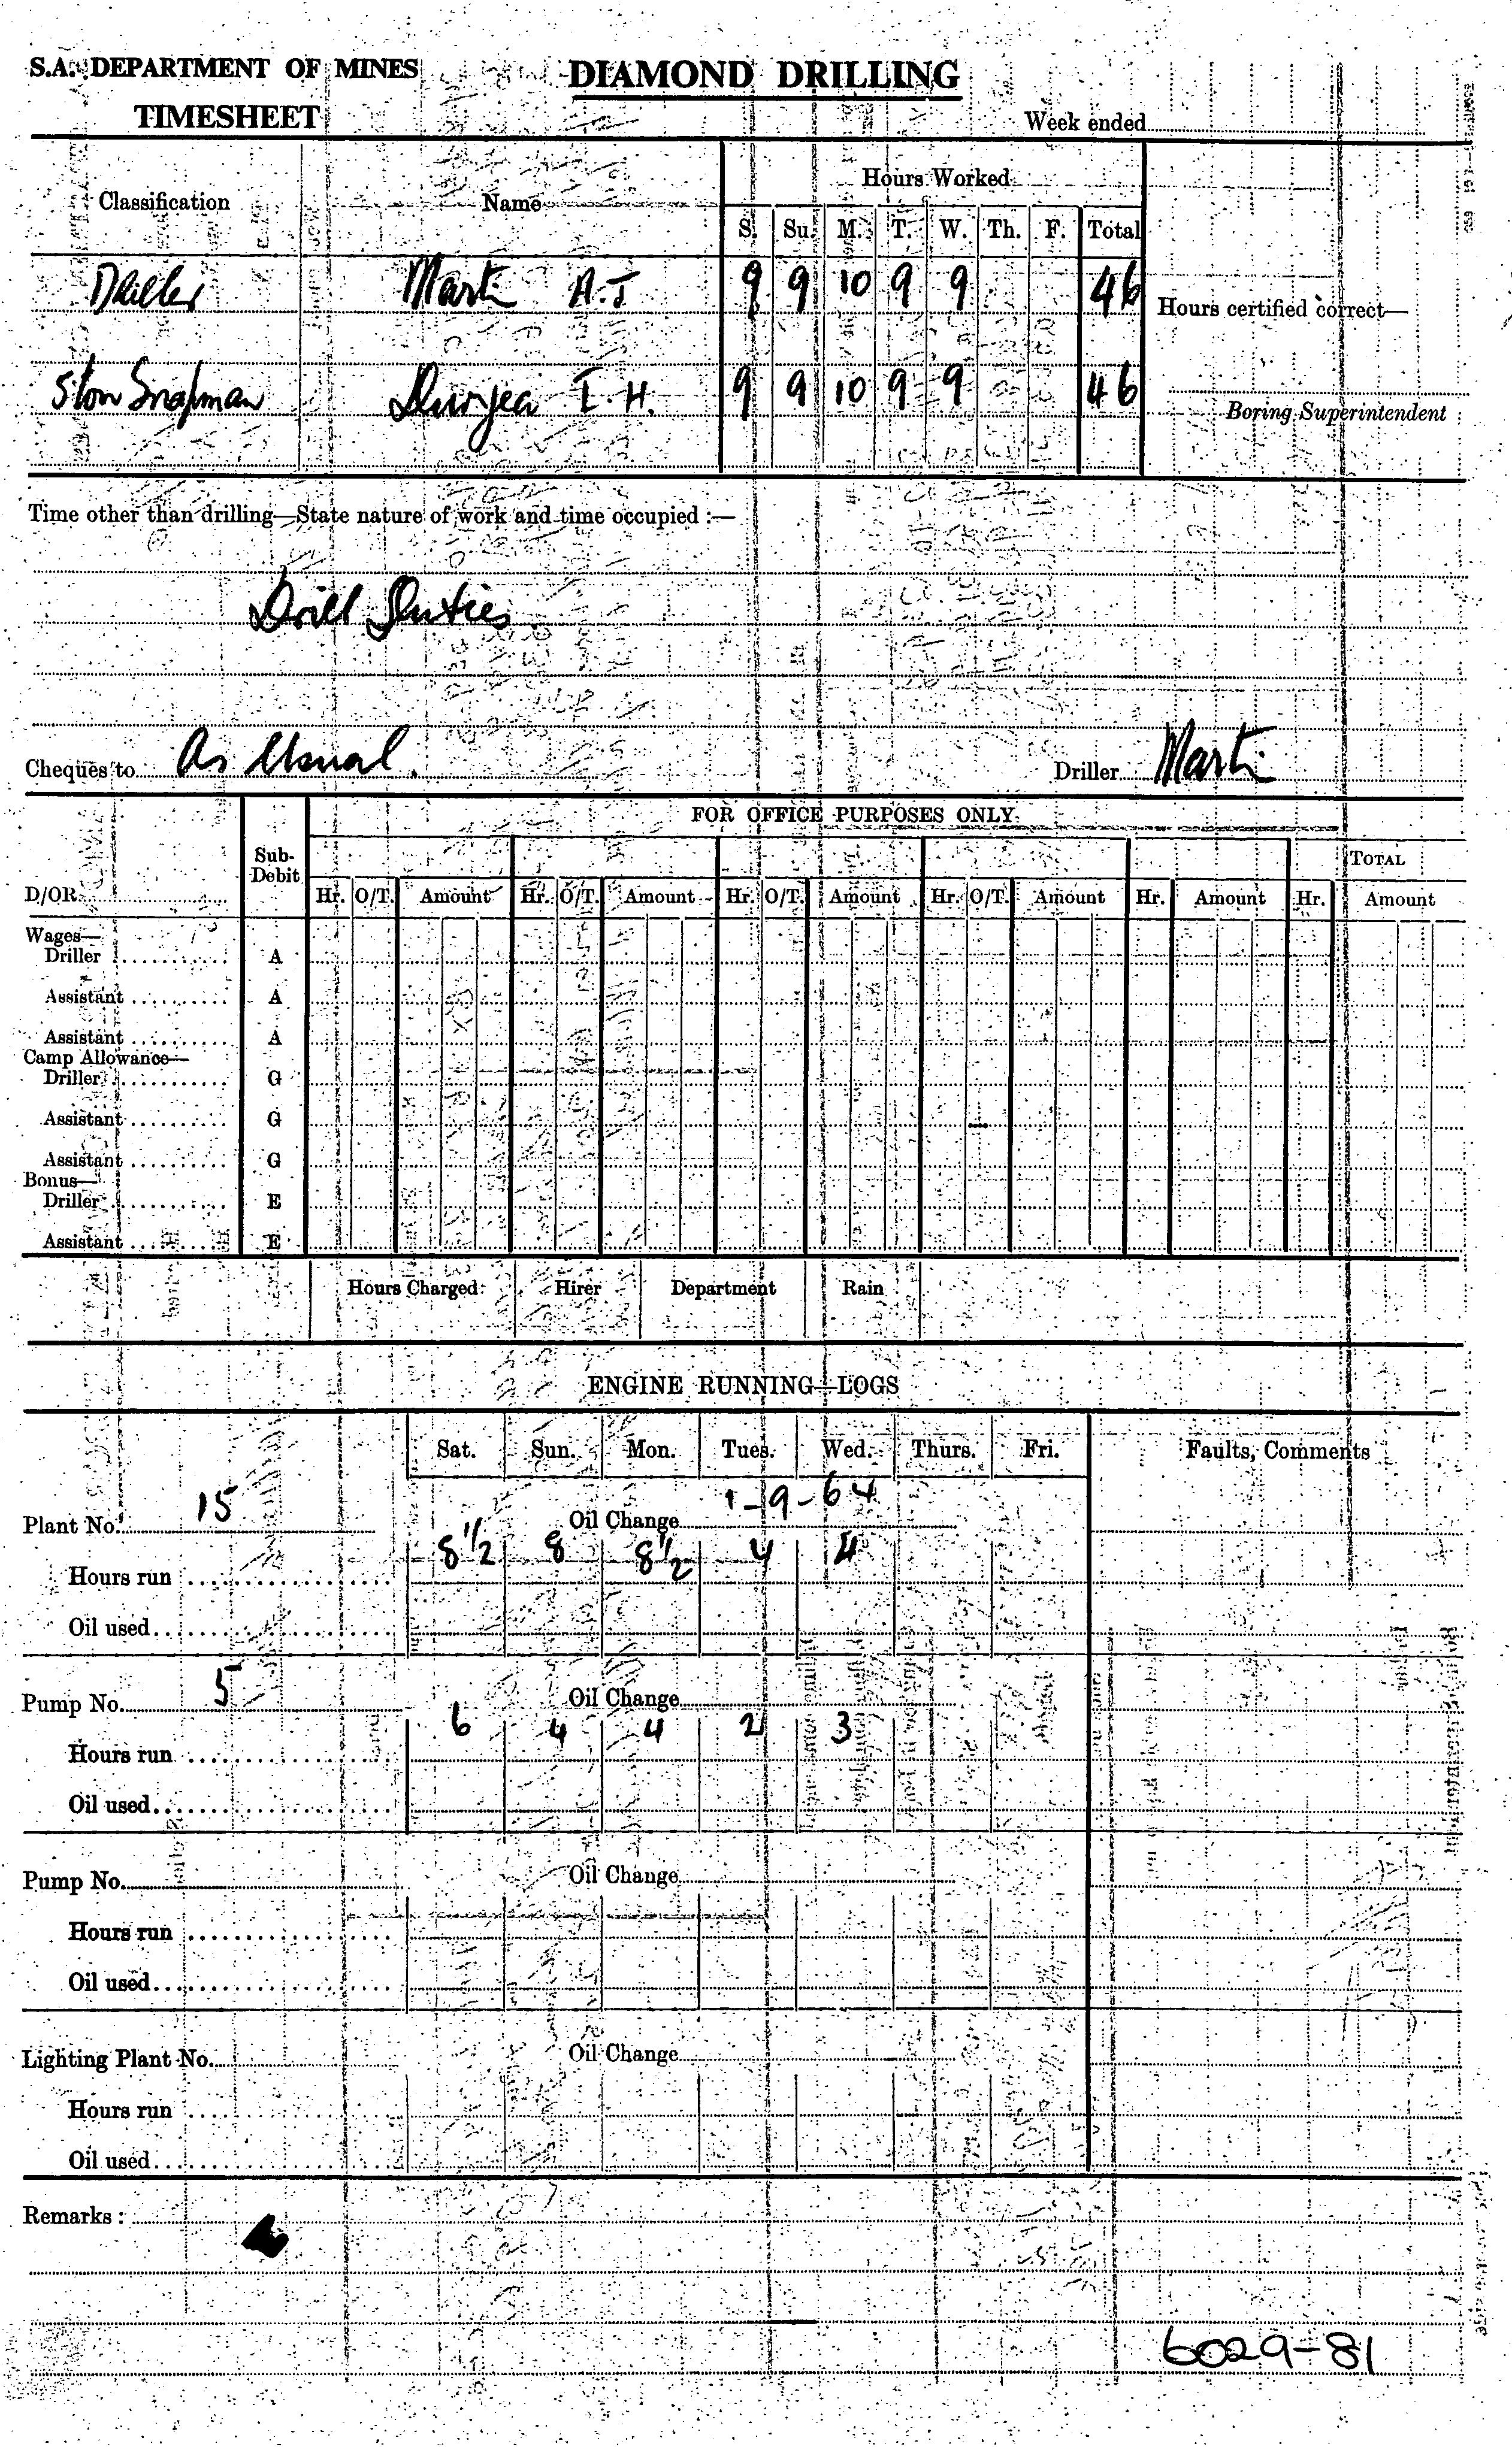 S.A. DEPARTMENT OF MINES
DIAMOND DRILLING
TIMESHEET
Week ended
Classification Name Hours Worked
S. Su. M. T. W. Th. F. Total
Driller Martin A.J 9 9 10 9 9 46
Hours certified correct—
I. H. 9 9 10 9 9 46
Boring Superintendent
Time other than drilling—State nature of work and time occupied :—
Drill Duties
Cheques to As Usual. Driller Martin
FOR OFFICE PURPOSES ONLY
Sub-Debit TOTAL
D/OR Hr. O/T. Amount Hr. O/T. Amount Hr. O/T. Amount Hr. O/T. Amount Hr. Amount Hr. Amount
Wages—
Driller A
Assistant A
Assistant A
Camp Allowance—
Driller G
Assistant G
Assistant G
Bonus—
Driller E
Assistant E
Hours Charged Hirer Department Rain
ENGINE RUNNING—LOGS
Sat. Sun. Mon. Tues. Wed. Thurs. Fri. Faults, Comments
Plant No. 15 Oil Change 1-9-64
Hours run 8 1/2 8 8 1/2 4 4
Oil used
Pump No. 5 Oil Change
Hours run 6 4 4 2 3
Oil used
Pump No. Oil Change
Hours run
Oil used
Lighting Plant No. Oil Change
Hours run
Oil used
Remarks :
6029-81